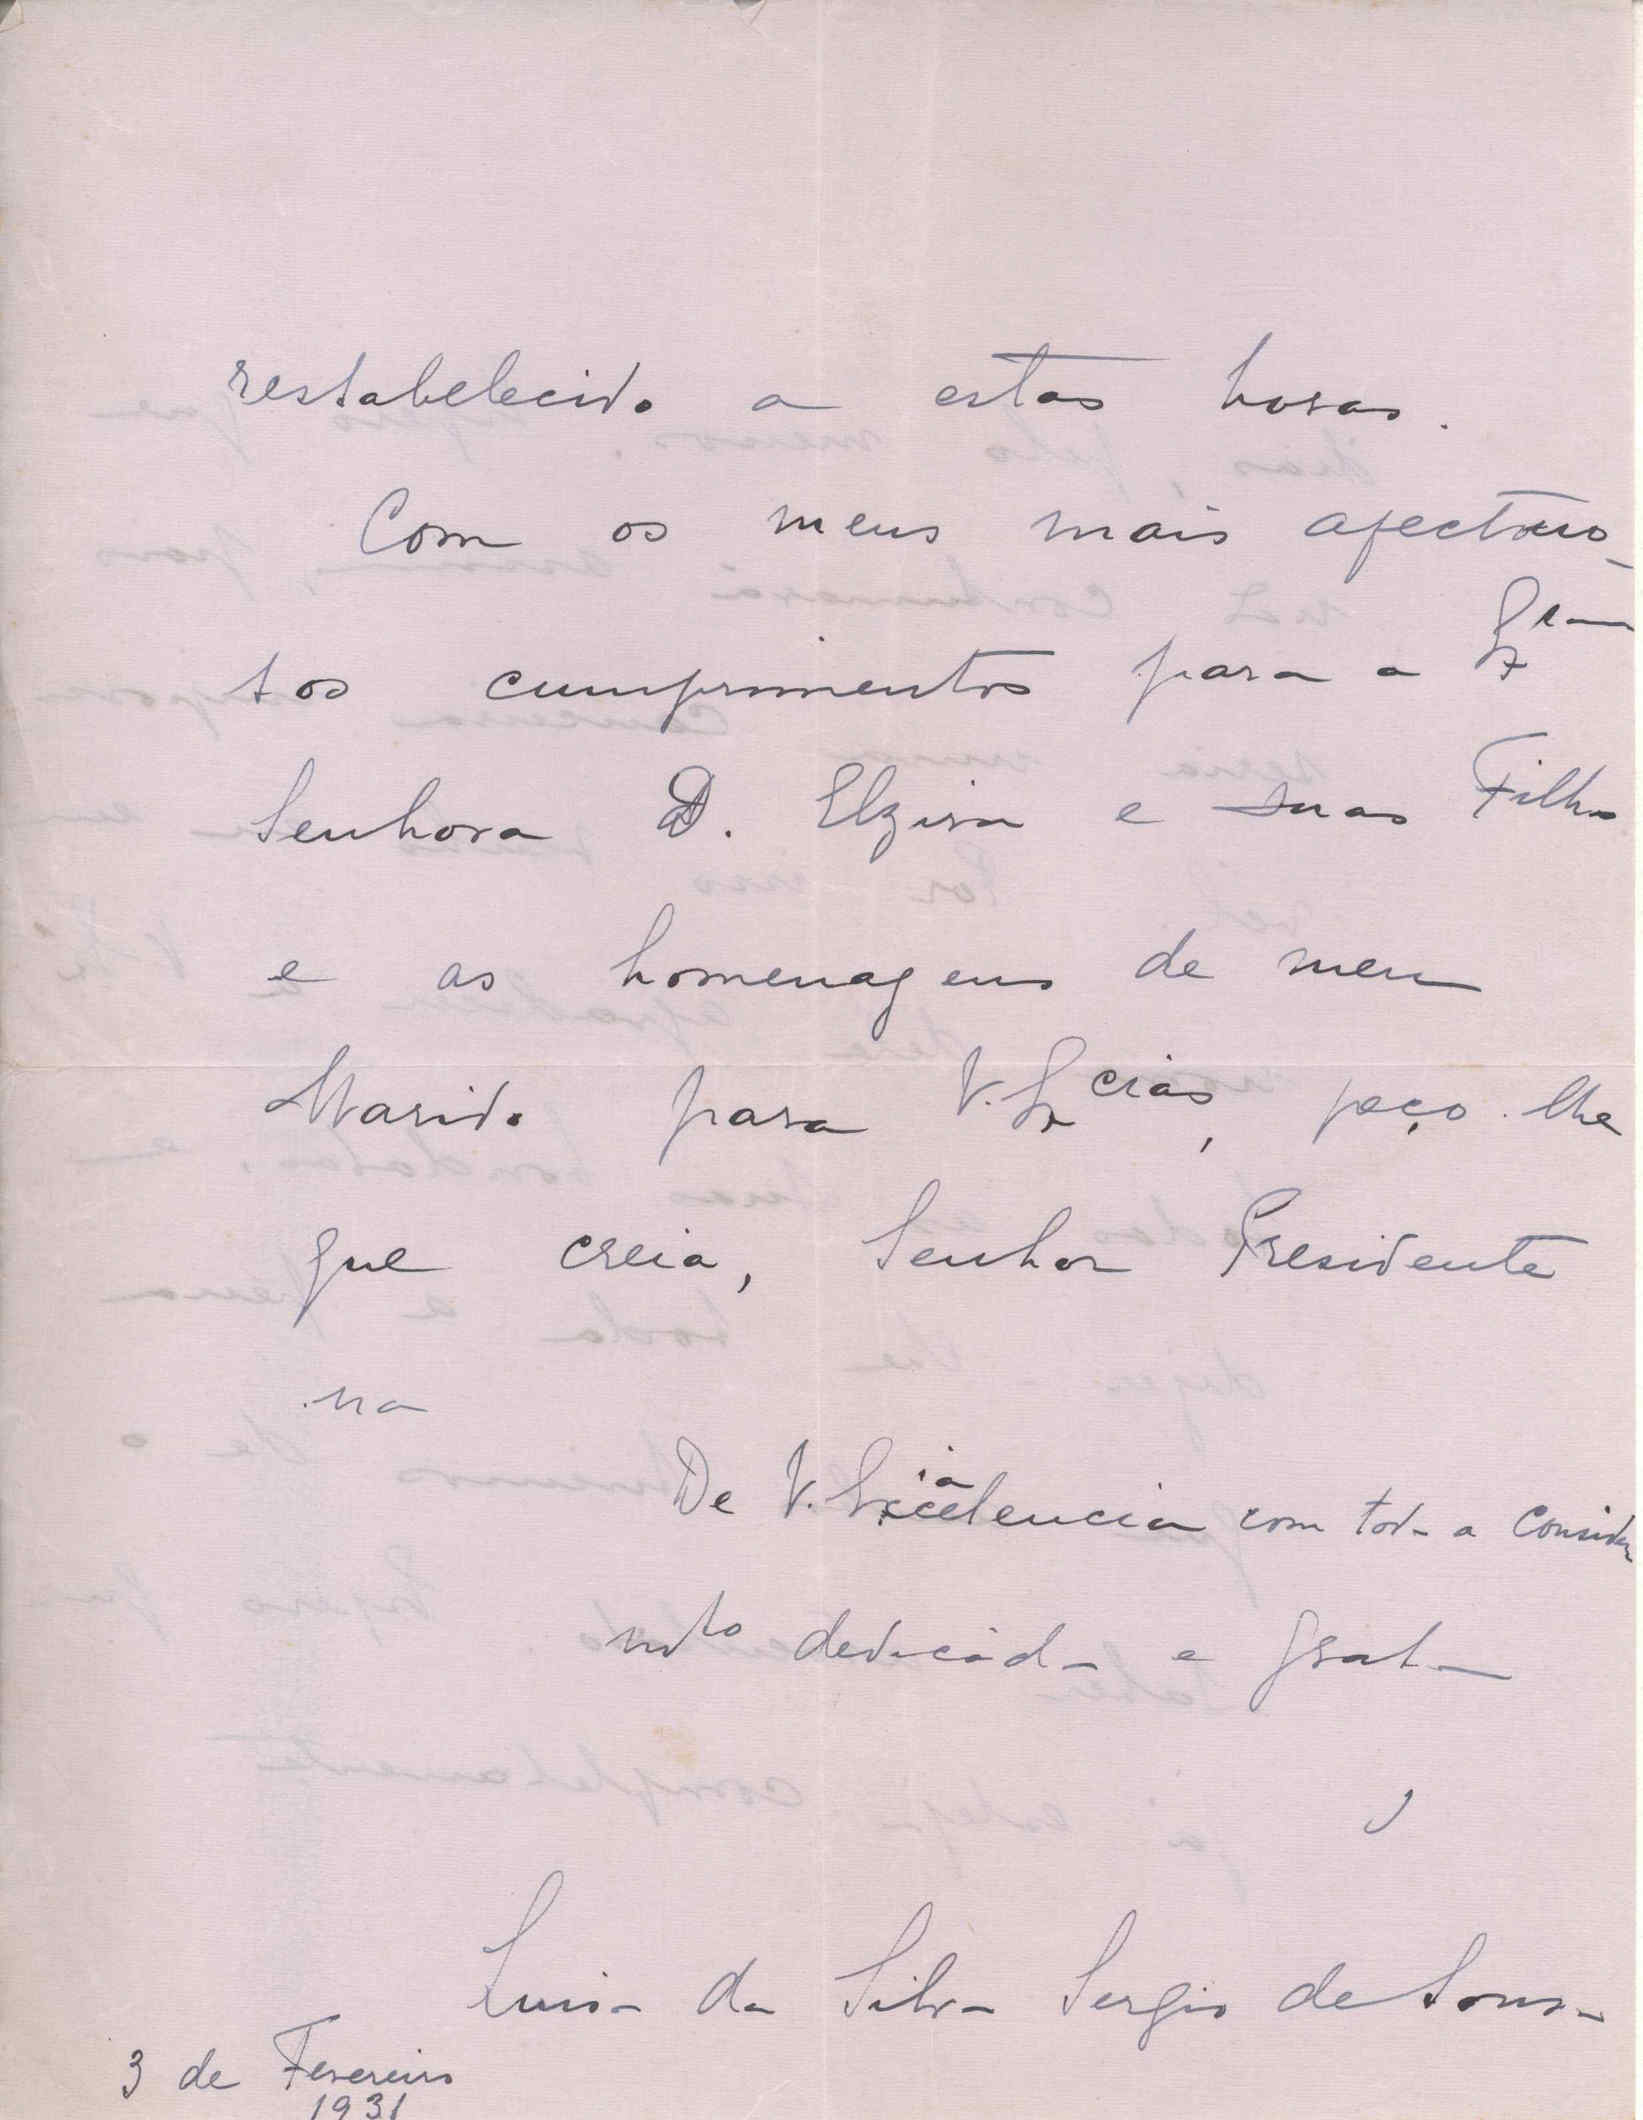 restabelecido a estas horas.
Com os meus mais afectuo-
sos cumprimentos para a Exma
Senhora D. Elzira e suas Filhas
e as homenagens de meu
Marido para V. Excias, peço-lhe
que creia, Senhor Presidente
na
De V. Excelencia com toda a consider
mto dedicada e grata
Luisa da Silva Sergio de Sousa
3 de Fevereiro
1931